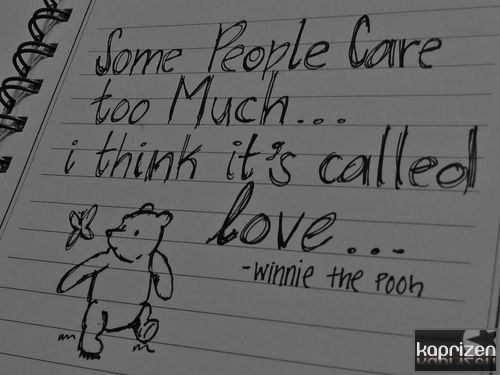 Some People Care
too Much...
i think it's called
love...
-winnie the Pooh
kaprizen